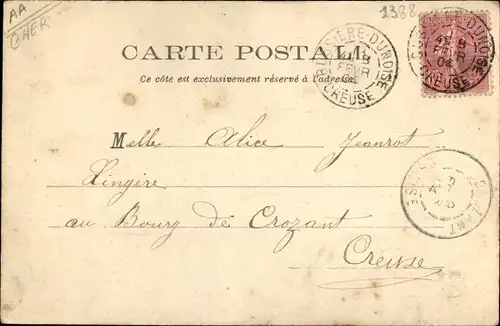 AA
CHER
1388
CARTE POSTALE
Ce côté est exclusivement réservé à l'adresse
BUSSIÈRE-DUNOISE
FEVR
04
CREUSE
FEVR
04
CREUSE
Melle Alice Jeanrot
Lingère
au Bourg de Crozant
Creuse